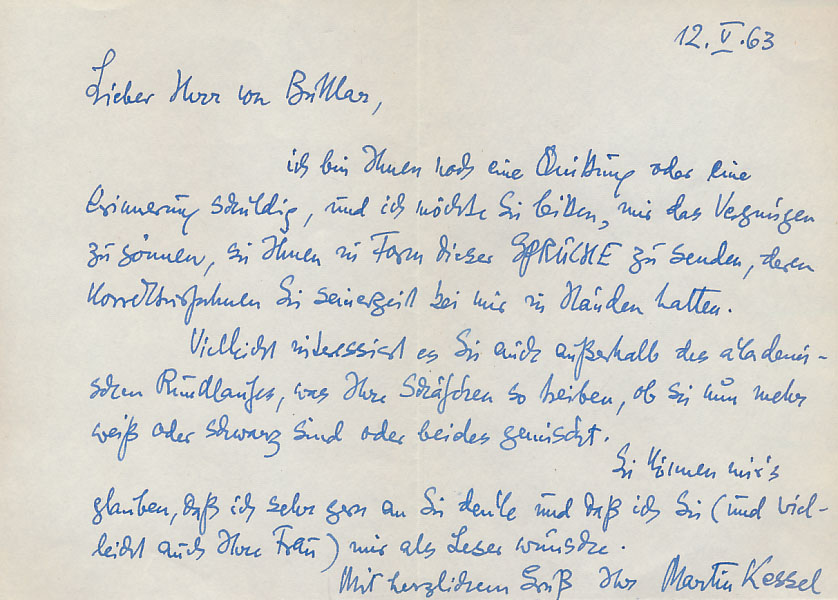 12. V. 63
Lieber Herr von Buttlar,
ich bin Ihnen noch eine Quittung oder eine
Erinnerung schuldig, und ich möchte Sie bitten, mir das Vergnügen
zu gönnen, sie Ihnen in Form dieser SPRÜCHE zu senden, deren
Korrekturfahnen Sie seinerzeit bei mir in Händen hatten.
Vielleicht interessiert es Sie auch außerhalb des akademi-
schen Rundlaufes, was Ihre Schäfchen so treiben, ob sie nun mehr
weiß oder schwarz sind oder beides gemischt.
Sie können mir's
glauben, daß ich sehr gern an Sie denke und daß ich Sie (und viel-
leicht auch Ihre Frau) mir als Leser wünsche.
Mit herzlichem Gruß Ihr Martin Kessel